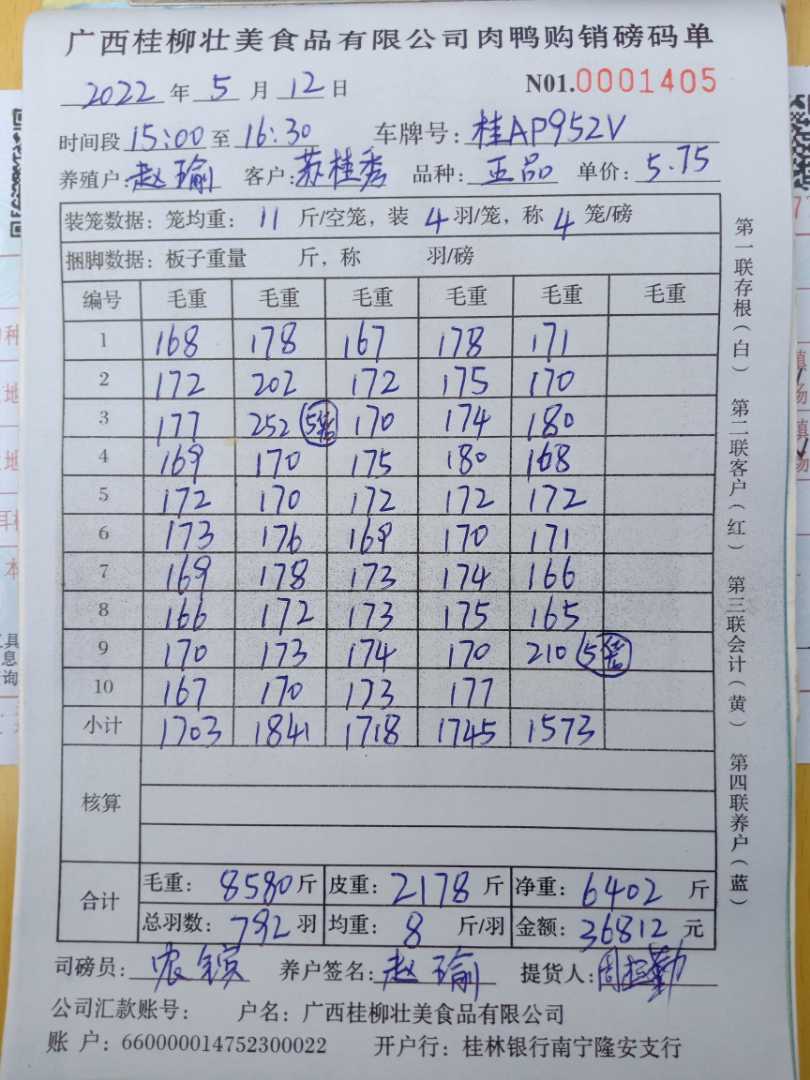 广西桂柳壮美食品有限公司肉鸭购销磅码单
2022 年 5 月 12 日 N01.0001405
时间段 15:00 至 16:30 车牌号: 桂AP952V
养殖户: 赵瑜 客户: 苏桂秀 品种: 正品 单价: 5.75
装笼数据: 笼均重: 11 斤/空笼, 装 4 羽/笼, 称 4 笼/磅
捆脚数据: 板子重量 斤, 称 羽/磅
编号 毛重 毛重 毛重 毛重 毛重 毛重
1 168 178 167 178 171
2 172 202 172 175 170
3 177 252 (5笼) 170 174 180
4 169 170 175 180 168
5 172 170 172 172 172
6 173 176 169 170 171
7 169 178 173 174 166
8 166 172 173 175 165
9 170 173 174 170 210 (5笼)
10 167 170 173 177
小计 1703 1841 1718 1745 1573
核算
合计 毛重: 8580 斤 皮重: 2178 斤 净重: 6402 斤
总羽数: 792 羽 均重: 8 斤/羽 金额: 36812 元
司磅员: 农 养户签名: 赵瑜 提货人: 周 勤
公司汇款账号: 户名: 广西桂柳壮美食品有限公司
账 户: 660000014752300022 开户行: 桂林银行南宁隆安支行
第一联存根(白) 第二联客户(红) 第三联会计(黄) 第四联养户(蓝)